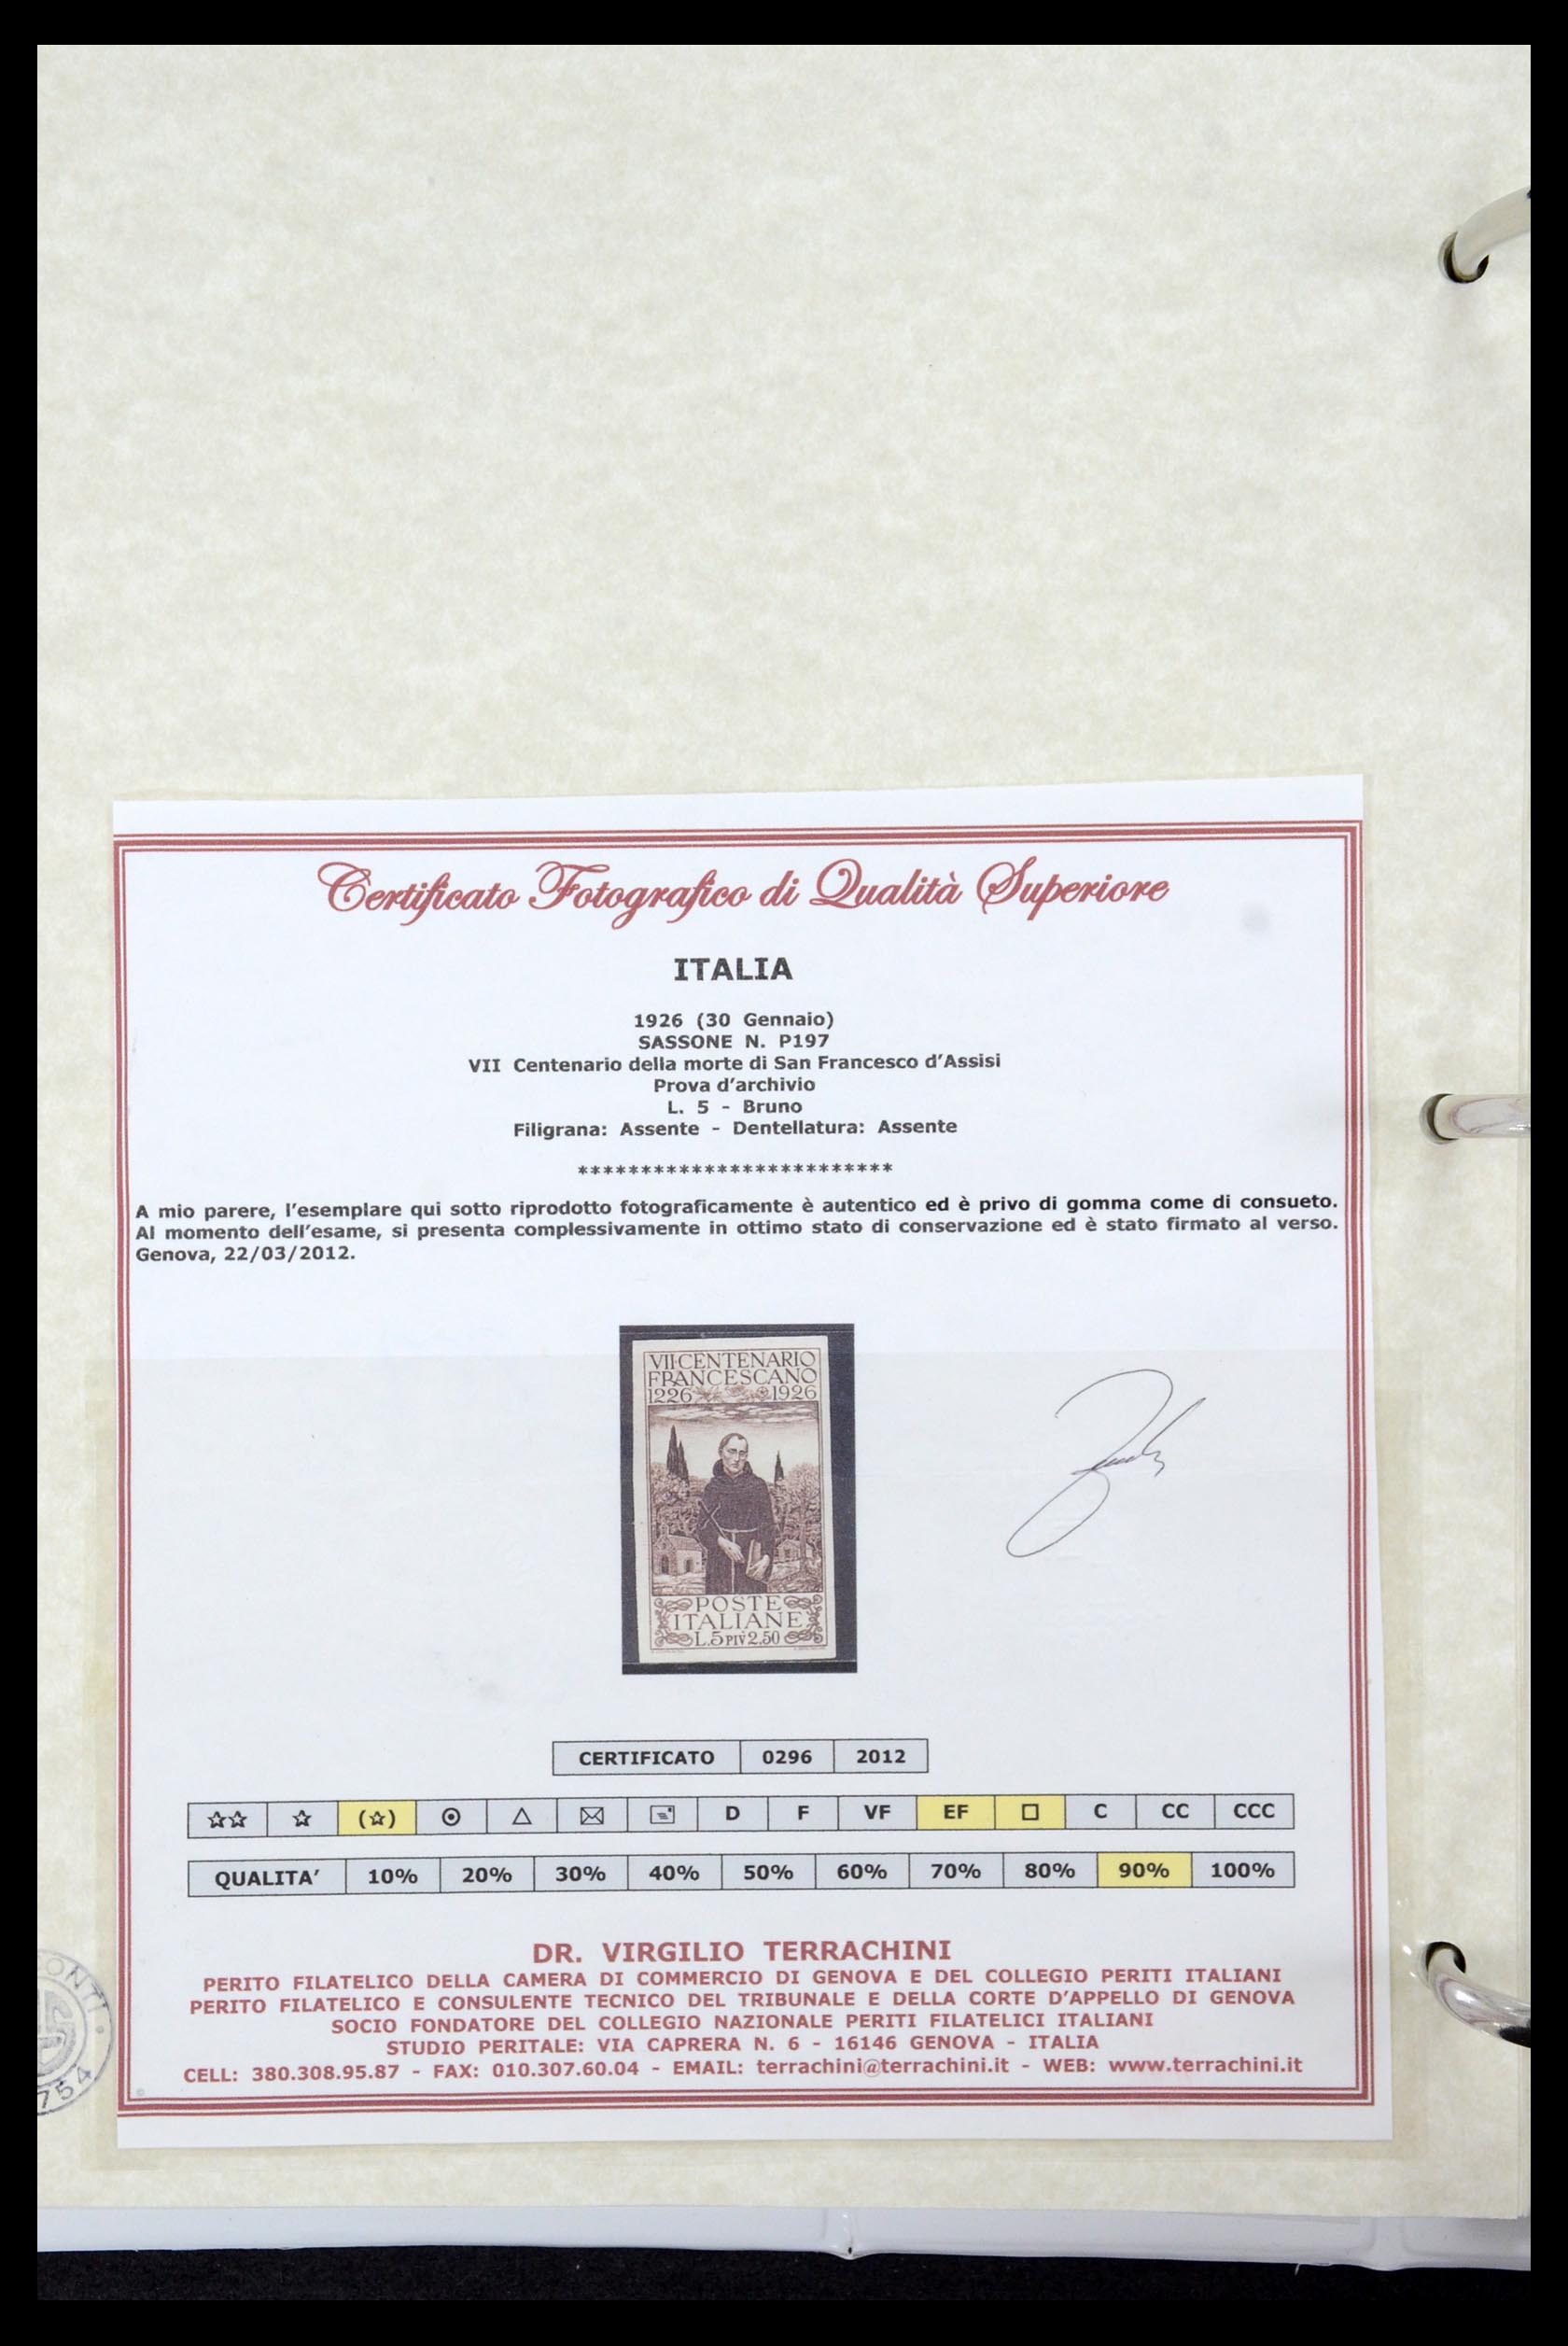 Certificato Fotografico di Qualità Superiore
ITALIA
1926 (30 Gennaio)
SASSONE N. P197
VII Centenario della morte di San Francesco d'Assisi
Prova d'archivio
L. 5 - Bruno
Filigrana: Assente - Dentellatura: Assente
*************************
A mio parere, l'esemplare qui sotto riprodotto fotograficamente è autentico ed è privo di gomma come di consueto.
Al momento dell'esame, si presenta complessivamente in ottimo stato di conservazione ed è stato firmato al verso.
Genova, 22/03/2012.
VII·CENTENARIO
FRANCESCANO
1226 1926
POSTE
ITALIANE
L.5 PIÙ 2.50
CERTIFICATO 0296 2012
☆☆ ☆ (☆) ⊙ △ ✉ D F VF EF □ C CC CCC
QUALITA' 10% 20% 30% 40% 50% 60% 70% 80% 90% 100%
DR. VIRGILIO TERRACHINI
PERITO FILATELICO DELLA CAMERA DI COMMERCIO DI GENOVA E DEL COLLEGIO PERITI ITALIANI
PERITO FILATELICO E CONSULENTE TECNICO DEL TRIBUNALE E DELLA CORTE D'APPELLO DI GENOVA
SOCIO FONDATORE DEL COLLEGIO NAZIONALE PERITI FILATELICI ITALIANI
STUDIO PERITALE: VIA CAPRERA N. 6 - 16146 GENOVA - ITALIA
CELL: 380.308.95.87 - FAX: 010.307.60.04 - EMAIL: terrachini@terrachini.it - WEB: www.terrachini.it
ONTI
754